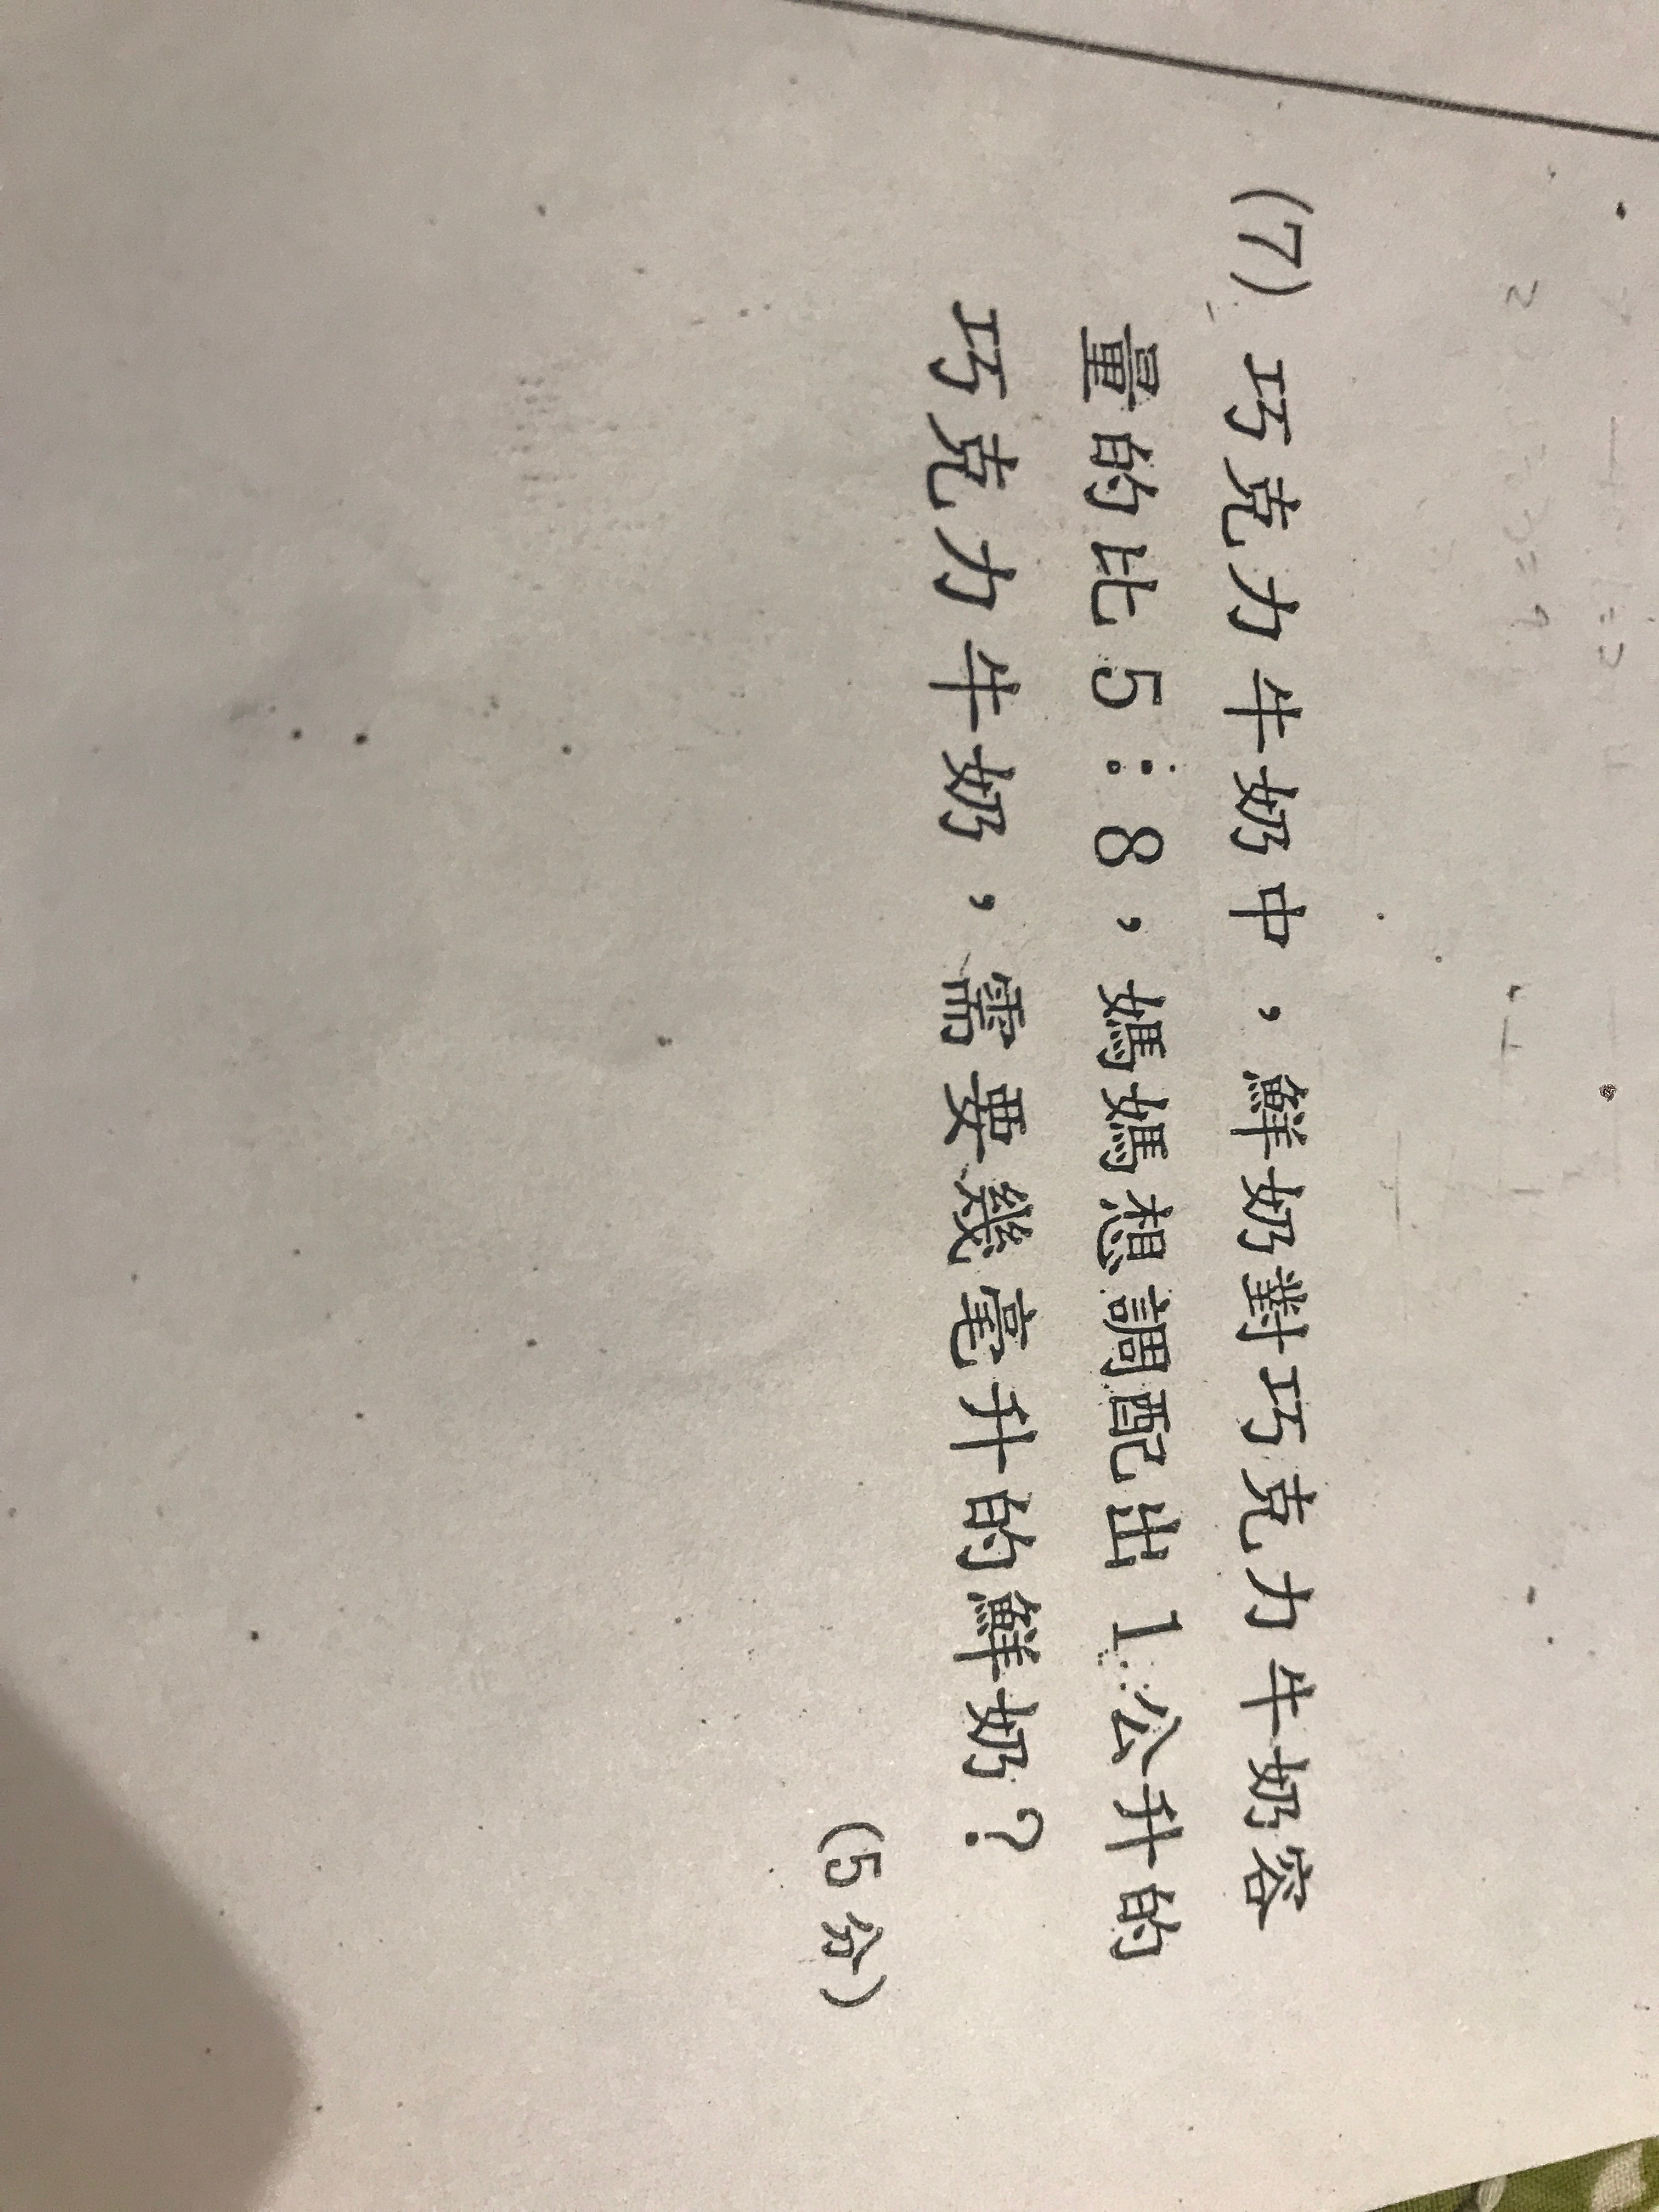 (7) 巧克力牛奶中，鮮奶對巧克力牛奶容
量的比5：8，媽媽想調配出1公升的
巧克力牛奶，需要幾毫升的鮮奶？
(5分)